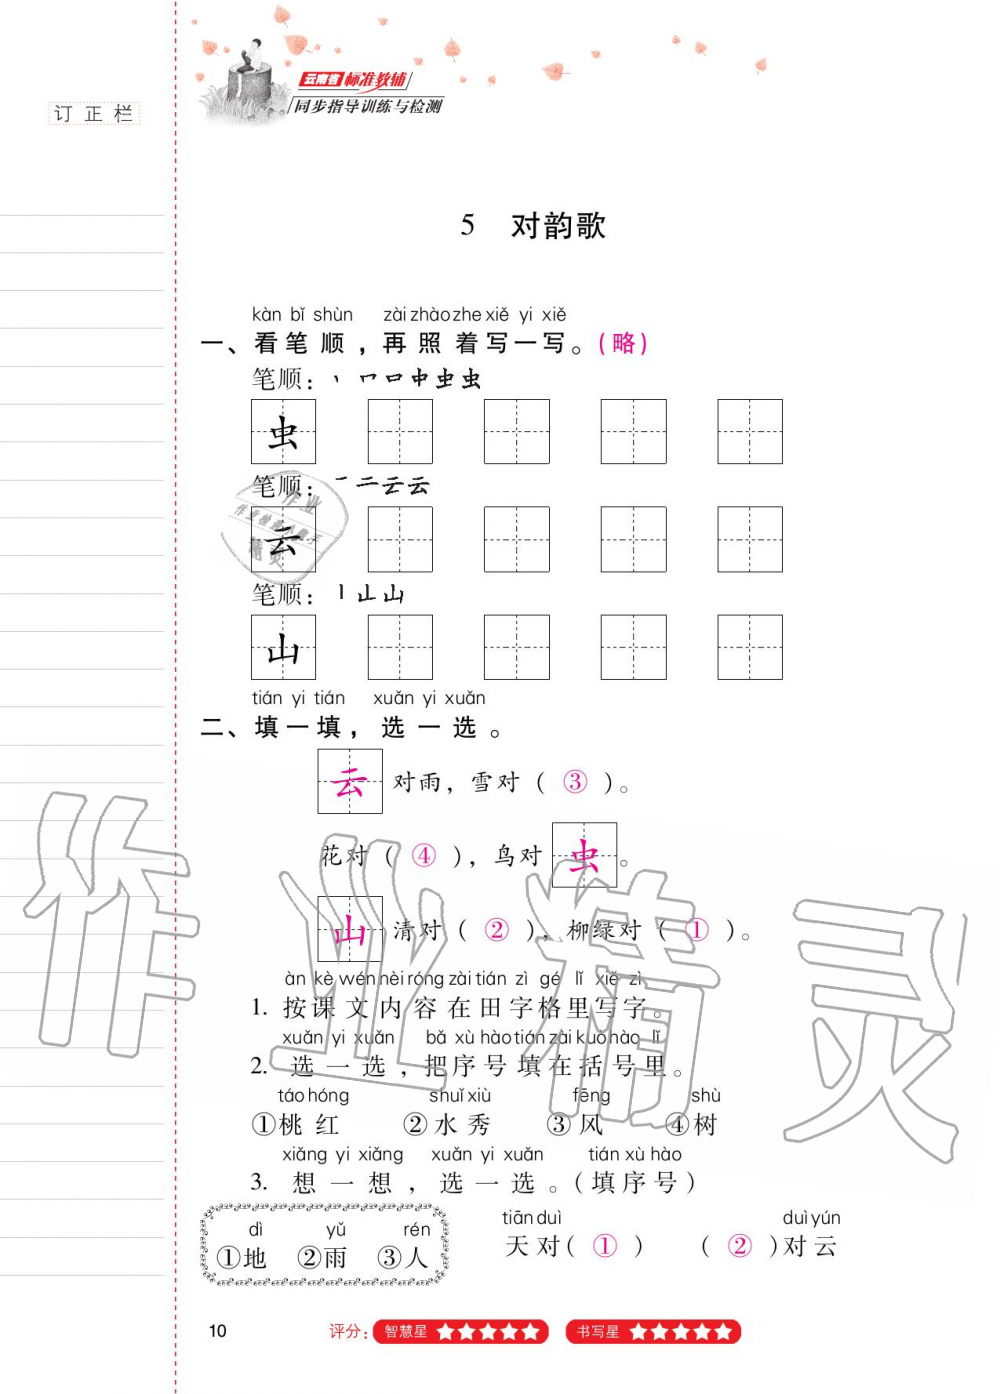 云南省标准教辅
同步指导训练与检测
订正栏
5 对韵歌
kàn bǐ shùn zài zhào zhe xiě yi xiě
一、看笔顺，再照着写一写。(略)
笔顺：丶 𠃍 口 中 虫 虫
虫
笔顺：一 二 云 云
云
笔顺：丨 山 山
山
tián yi tián xuǎn yi xuǎn
二、填一填，选一选。
云 对雨，雪对（ ③ ）。
花对（ ④ ），鸟对 虫 。
山 清对（ ② ），柳绿对（ ① ）。
àn kè wén nèi róng zài tián zì gé lǐ xiě zì
1. 按课文内容在田字格里写字。
xuǎn yi xuǎn bǎ xù hào tián zài kuò hào lǐ
2. 选一选，把序号填在括号里。
táo hóng shuǐ xiù fēng shù
①桃红 ②水秀 ③风 ④树
xiǎng yi xiǎng xuǎn yi xuǎn tián xù hào
3. 想一想，选一选。(填序号)
dì yǔ rén
①地 ②雨 ③人
tiān duì duì yún
天对( ① ) ( ② )对云
10 评分： 智慧星 书写星
作业精灵
作业
作业检查小助手
精灵